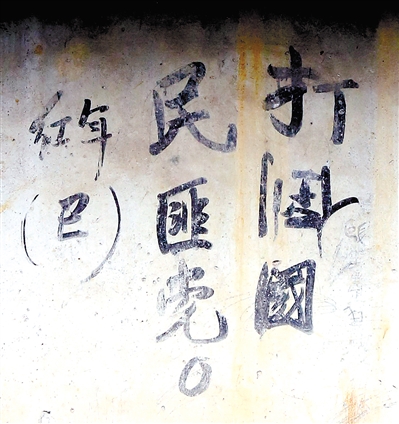 打倒國
民匪党。
红军
(巳)